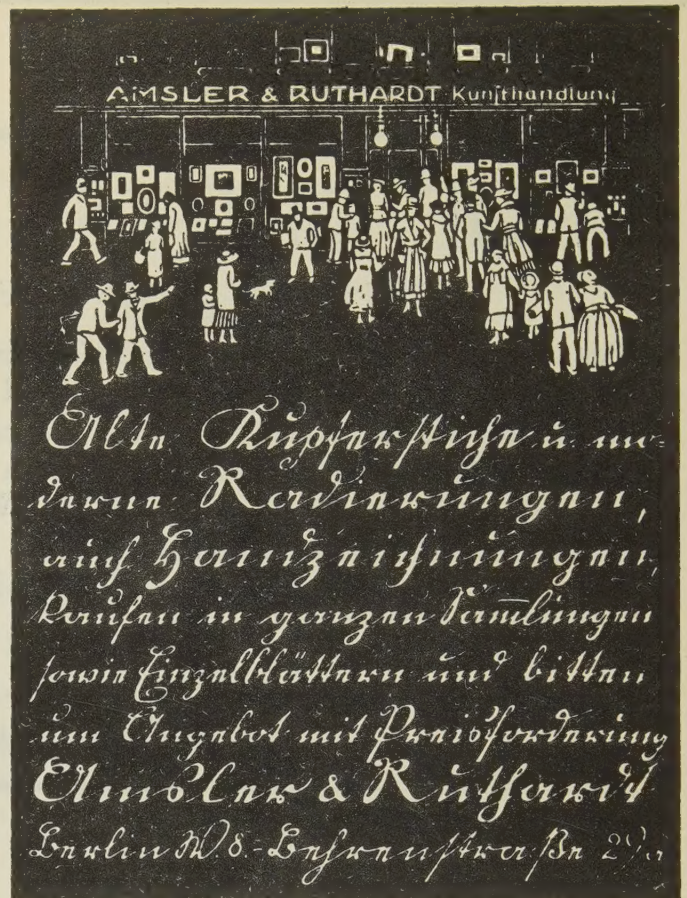 AMSLER & RUTHARDT Kunsthandlung
Alte Kupferstiche u. mo-
derne Radierungen,
auch Handzeichnungen,
kaufen in ganzen Sam̅lungen
sowie Einzelblättern und bitten
um Angebot mit Preisforderung
Amsler & Ruthardt
Berlin W. 8.-Behrenstraße